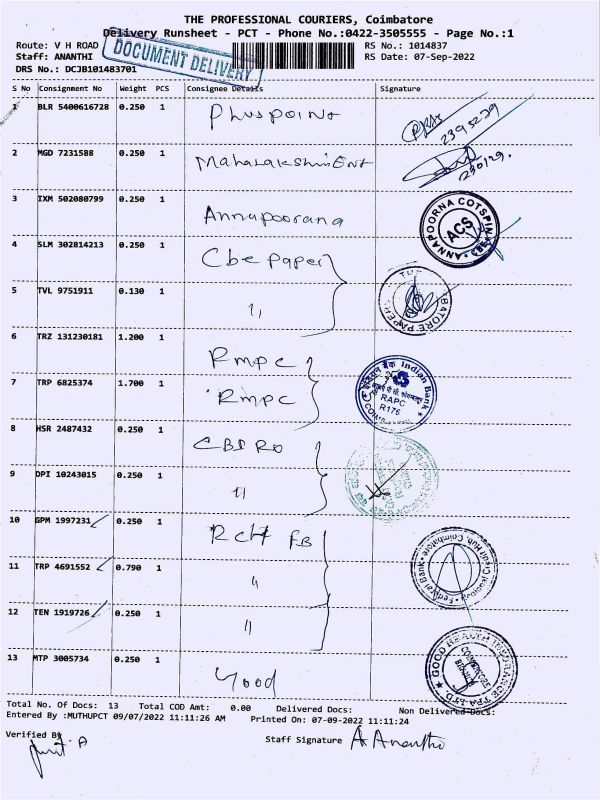 THE PROFESSIONAL COURIERS, Coimbatore
Delivery Runsheet - PCT - Phone No.:0422-3505555 - Page No.:1
Route: V H ROAD
Staff: ANANTHI
DRS No.: DCJB101483701
DOCUMENT DELIVERY
RS No.: 1014837
RS Date: 07-Sep-2022
S No Consignment No Weight PCS Consignee Details Signature
1 BLR 5400616728 0.250 1 Pluspoint
2395229
2 MGD 7231588 0.250 1 Mahalakshmi Ent
3 IXM 502080799 0.250 1 Annapoorana
ANNAPOORNA COTSPIN
ACS
4 SLM 302814213 0.250 1 Cbe Paper
5 TVL 9751911 0.130 1 "
6 TRZ 131230181 1.200 1 RMPC
7 TRP 6825374 1.700 1 RMPC
Indian Bank
RAPC
R176
8 HSR 2487432 0.250 1 CBE RO
9 DPI 10243015 0.250 1 "
10 GPM 1997231 0.250 1 RCH FB
11 TRP 4691552 0.790 1 "
Federal Bank
Credit Hub, Coimbatore
12 TEN 1919726 0.250 1 "
13 MTP 3005734 0.250 1 Good
GOOD HEALTH INSURANCE TPA LTD.
COIMBATORE
Total No. Of Docs: 13 Total COD Amt: 0.00 Delivered Docs: Non Delivered Docs:
Entered By :MUTHUPCT 09/07/2022 11:11:26 AM Printed On: 07-09-2022 11:11:24
Verified By
Staff Signature A Ananthi